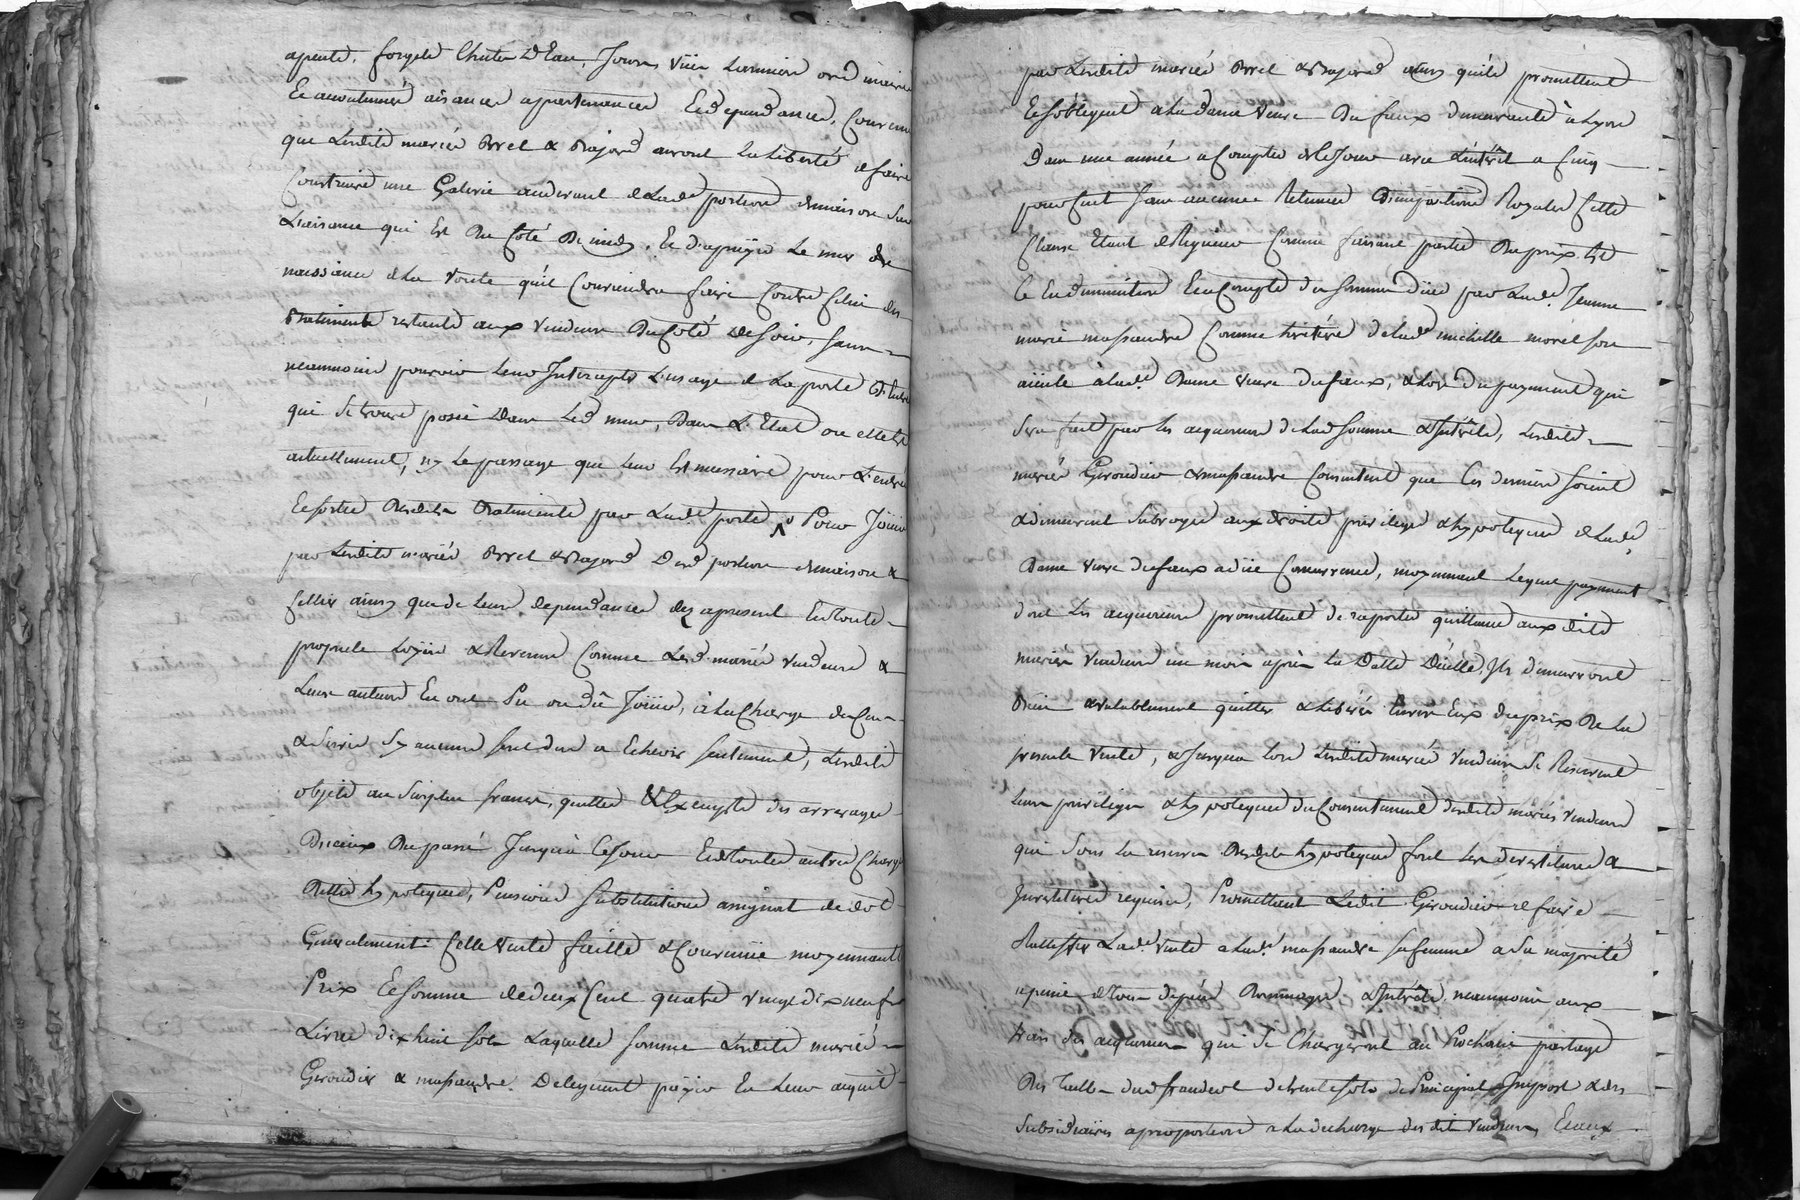 apente, forgets Chute D'Eau, Jours, Vüe
Et accoutumés aisances appartenances Et dependances, Convenu
que Lesdits mariés Orcel & Bajard auront La Liberté de faire
Construire une Galerie audevant de Lad. portion de maison Sur
L'aisance qui Est Du Coté De midy, Et d'apuyer Le mur de
naissance de La Voute qu'il Conviendra faire Contre Celui des
Batiments restants aux Vendeurs Du Coté De Soir, Sans
neanmoins pouvoir Leur Intercepter L'usage de La porte
qui Se trouve posée Dans Led mur, Dans L'Etat ou elle Est
actuellement, ny Le passage qui Leur Est necessaire pour L'entrée
Et sortie Desdits Batiments par Lade porte, Pour Jouir
par Lesdits mariés Orcel & Bajard Des portion de maison &
ainsy que de Leurs dependances dez apresent En Toute
propriete & Revenus Comme Lesd. mariés Vendeurs &
Leurs auteurs En ont Pu ou Dû Jouir, à La Charge de
& Servis Sy aucuns Sont dus a Echoir Seulement, Lesdits
objets au Surplus francs, quittes & Exempts des arrerages
Diceux Du passé Jusqu'à Ce Jour Et de Toutes autres Charges
Dettes hypoteques, Pensions Substitutions assignat de dot
Generalement: Cette Vente faitte & Convenüe moyennant
Prix Et Somme de deux Cent quatre vingt dix neuf
Livres dix huit Sols Laquelle Somme Lesdits mariés
Giroudier & massardre. Deleguent payer En Leur acquit
par Lesdits mariés Orcel & Bajard ainsy qu'ils promettent
Et S'obligent a La Dame Veuve Dufaux demeurante à Lyon
Dans une année a Compter de Ce Jour avec L'intérêt a Cinq
pour Cent Sans aucune Retenue D'impositions Royales Cette
Clause Etant de Rigueur Comme faisant partie Du prix Et
Ce En diminution Et a Compte des Sommes Düe par Lade. Jeanne
marie massardre Comme heritiere de Lade michelle morel son
aieule à Lade. Dame veuve dufaux, & Lors du payement qui
Sera fait par Les acquereurs de Lade Somme & Intérêts, Lesdits
mariés Giroudier & massardre Consentent que Ces derniers Soient
& demeurent Subrogés aux droits privileges & hypoteques de Lade
Dame veuve dufaux a düe Concurrence, moyennant Lequel payement
dont Les acquereurs promettent de raporter quittance auxdits
mariés Vendeurs un mois après La Datte D'icelle, Ils demeureront
Bien & valablement quittes & Libérés Envers Eux du prix De La
presente Vente, & Jusqua Lors Lesdits mariés Vendeurs Se Reservent
Leurs privileges & hypoteques du Consentement desdits mariés Vendeurs
qui Sous La reserve Desdits hypoteques font Les devestitures &
Investitures requises, Promettant Ledit Giroudier de faire
Ratiffier Lade. vente a Lade. massardre sa femme a Sa majorité
a peine de tous depens Dommages & Intérêts, neanmoins aux
frais des acquereurs qui Se Chargeront au Prochain partage
Des Tailles dud de trente Sols de Principal Impost & des
Subsidiaires a proportion a La decharge des dits Vendeurs, Et aux